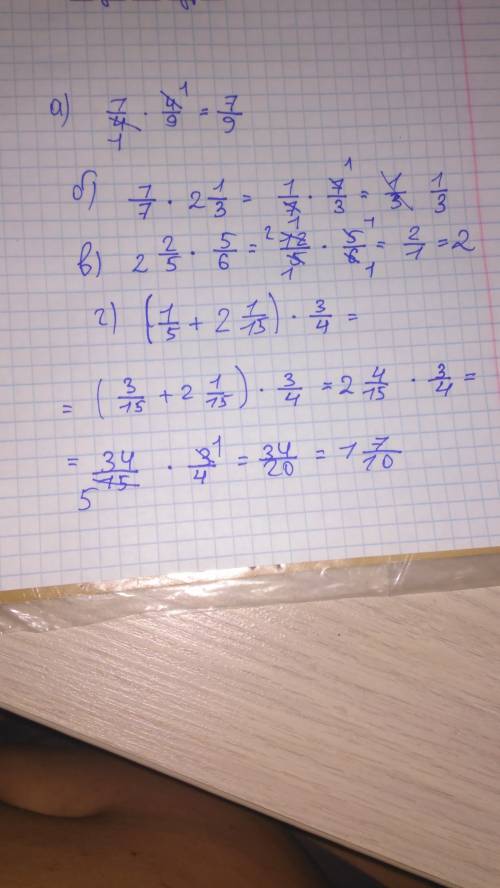 а) 7/4 · 4/9 = 7/9
б) 7/7 · 2 1/3 = 1/7 · 7/3 = 1/3 1/3
в) 2 2/5 · 5/6 = 12/5 · 5/6 = 2/1 = 2
г) (1/5 + 2 1/15) · 3/4 =
= (3/15 + 2 1/15) · 3/4 = 2 4/15 · 3/4 =
= 34/15 · 3/4 = 34/20 = 1 7/10